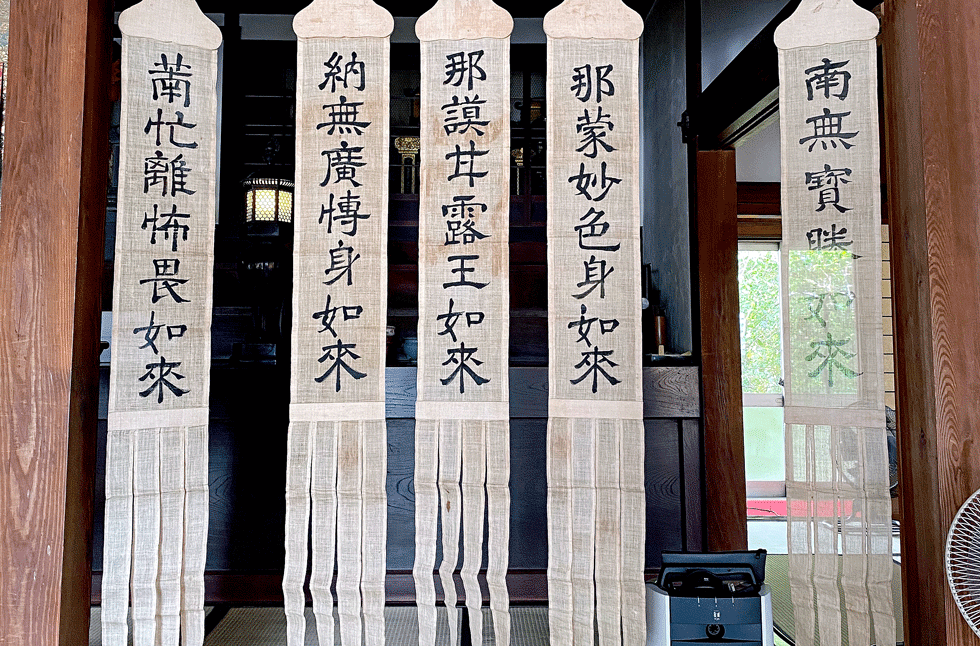 南無寶勝如來
那蒙妙色身如來
那謨甘露王如來
納無廣愽身如來
萳忙離怖畏如來